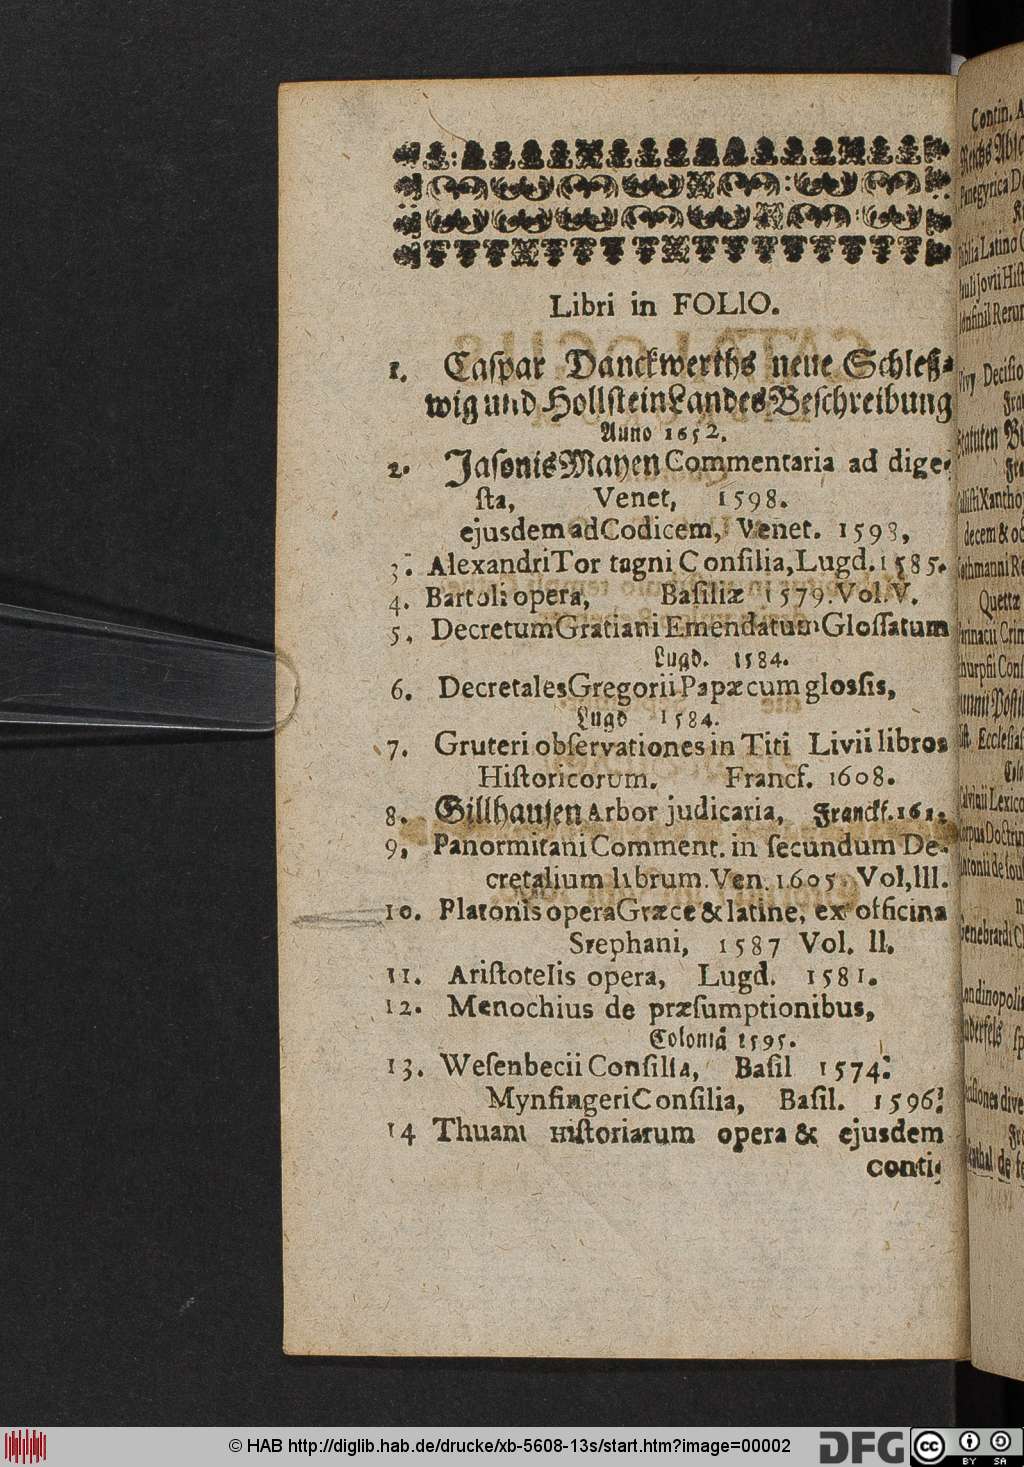 Libri in FOLIO.
1. Caſpar Danckwerths neue Schleß⸗
wig und HollſteinLandesBeſchreibung
Anno 1652.
2. JaſonisMayen Commentaria ad dige-
ſta, Venet, 1598.
ejusdem adCodicem, Venet. 1598,
3. AlexandriTor tagni Conſilia, Lugd. 1585.
4. Bartoli opera, Baſiliæ 1579. Vol. V.
5. DecretumGratiani EmendatumGloſſatum
Lugd. 1584.
6. DecretalesGregorii Papæ cum gloſſis,
Lugd 1584.
7. Gruteri obſervationes in Titi Livii libros
Hiſtoricorum. Francf. 1608.
8. Gillhauſen Arbor judicaria, Franckf. 161
9, Panormitani Comment. in ſecundum De-
cretalium librum. Ven. 1605. Vol, III.
10. Platonis operaGræce & latine, ex officina
Stephani, 1587 Vol. II.
11. Ariſtotelis opera, Lugd. 1581.
12. Menochius de præſumptionibus,
Coloniâ 1595.
13. Weſenbecii Conſilia, Baſil 1574.
MynſingeriConſilia, Baſil. 1596.
14 Thuani Hiſtoriarum opera & ejusdem
conti-
Contin.
Panegyrica
Biblia Latino
Jovii Hiſt
Rerum
Deciſio
Statuten
Xantho
decem & oc
Quettæ
Poſtil
Eccleſiaſ
Lexico
Corpus Doctrin
de
Genebrardi C
& HAB http://diglib.hab.de/drucke/xb-5608-13s/start.htm?image=00002
DFG
cc
BY SA